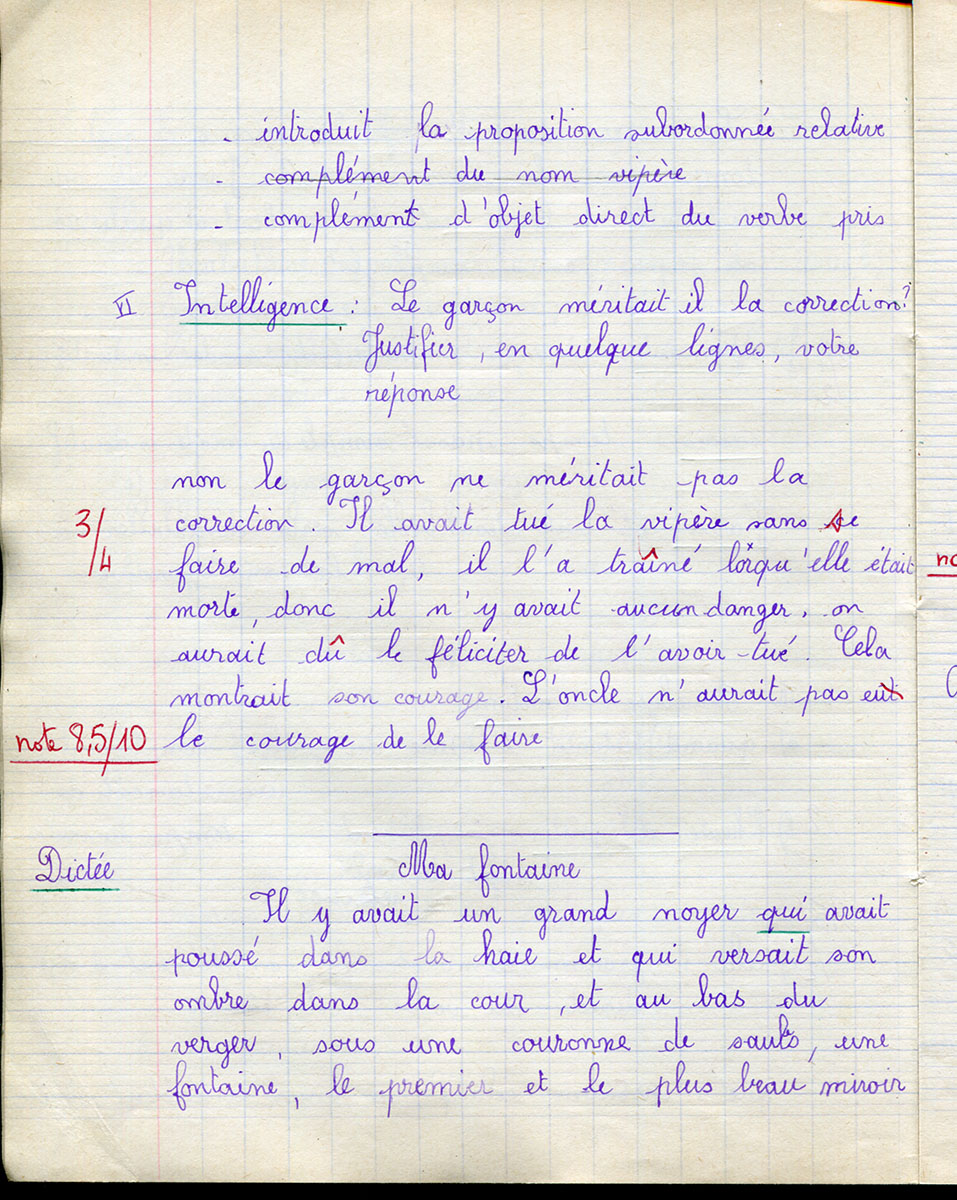 - introduit la proposition subordonnée relative
- complément du nom vipère
- complément d'objet direct du verbe pris
VI Intelligence : Le garçon méritait il la correction?
Justifier, en quelque lignes, votre
réponse
non le garçon ne méritait pas la
3/4 correction. Il avait tué la vipère sans se
faire de mal, il l'a traîné lorqu'elle était
morte, donc il n'y avait aucun danger, on
aurait dû le féliciter de l'avoir tué. Cela
montrait son courage. L'oncle n'aurait pas eut
note 8,5/10 le courage de le faire
Dictée Ma fontaine
Il y avait un grand noyer qui avait
poussé dans la haie et qui versait son
ombre dans la cour, et au bas du
verger, sous une couronne de sauls, une
fontaine, le premier et le plus beau miroir